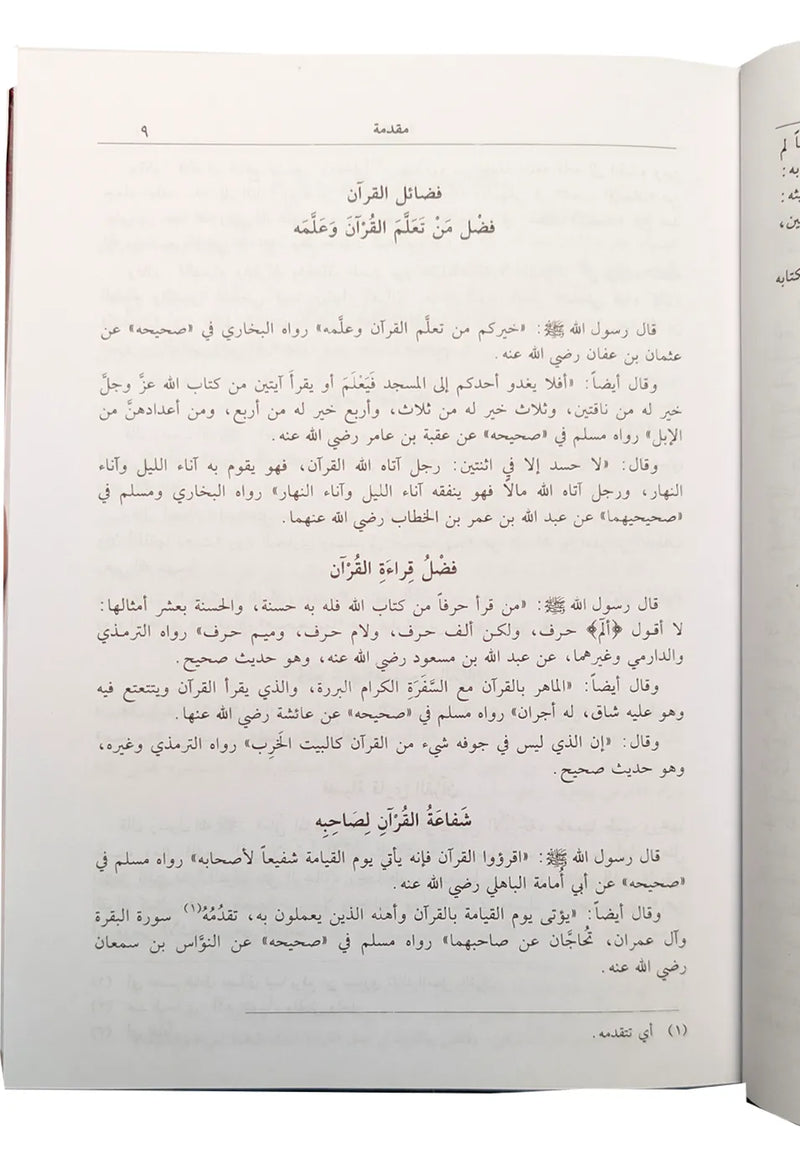 مقدمة ٩
فضائل القرآن
فضْل مَنْ تَعَلَّمَ القُرْآنَ وَعَلَّمَه
قال رسول الله ﷺ: «خيركم من تعلَّم القرآن وعلَّمه» رواه البخاري في «صحيحه» عن
عثمان بن عفان رضي الله عنه.
وقال أيضاً: «أفلا يغدو أحدكم إلى المسجد فَيَعْلَمَ أو يقرأ آيتين من كتاب الله عزَّ وجلَّ
خير له من ناقتين، وثلاث خير له من ثلاث، وأربع خير له من أربع، ومن أعدادهنَّ من
الإبل» رواه مسلم في «صحيحه» عن عقبة بن عامر رضي الله عنه.
وقال: «لا حسد إلا في اثنتين: رجل آتاه الله القرآن، فهو يقوم به آناء الليل وآناء
النهار، ورجل آتاه الله مالاً فهو ينفقه آناء الليل وآناء النهار» رواه البخاري ومسلم في
«صحيحيهما» عن عبد الله بن عمر بن الخطاب رضي الله عنهما.
فضْلُ قِراءَةِ القُرْآن
قال رسول الله ﷺ: «من قرأ حرفاً من كتاب الله فله به حسنة، والحسنة بعشر أمثالها:
لا أقول ﴿ألٓمٓ﴾ حرف، ولكن ألف حرف، ولام حرف، وميم حرف» رواه الترمذي
والدارمي وغيرهما، عن عبد الله بن مسعود رضي الله عنه، وهو حديث صحيح.
وقال أيضاً: «الماهر بالقرآن مع السَّفَرَةِ الكرام البررة، والذي يقرأ القرآن ويتتعتع فيه
وهو عليه شاق، له أجران» رواه مسلم في «صحيحه» عن عائشة رضي الله عنها.
وقال: «إن الذي ليس في جوفه شيء من القرآن كالبيت الخَرِب» رواه الترمذي وغيره،
وهو حديث صحيح.
شَفاعَةُ القُرْآنِ لِصَاحِبِه
قال رسول الله ﷺ: «اقرؤوا القرآن فإنه يأتي يوم القيامة شفيعاً لأصحابه» رواه مسلم في
«صحيحه» عن أبي أُمامة الباهلي رضي الله عنه.
وقال أيضاً: «يؤتى يوم القيامة بالقرآن وأهله الذين يعملون به، تقدُمُهُ(١) سورة البقرة
وآل عمران، تُحاجَّان عن صاحبهما» رواه مسلم في «صحيحه» عن النوَّاس بن سمعان
رضي الله عنه.
(١) أي تتقدمه.
لم
به:
كتابه